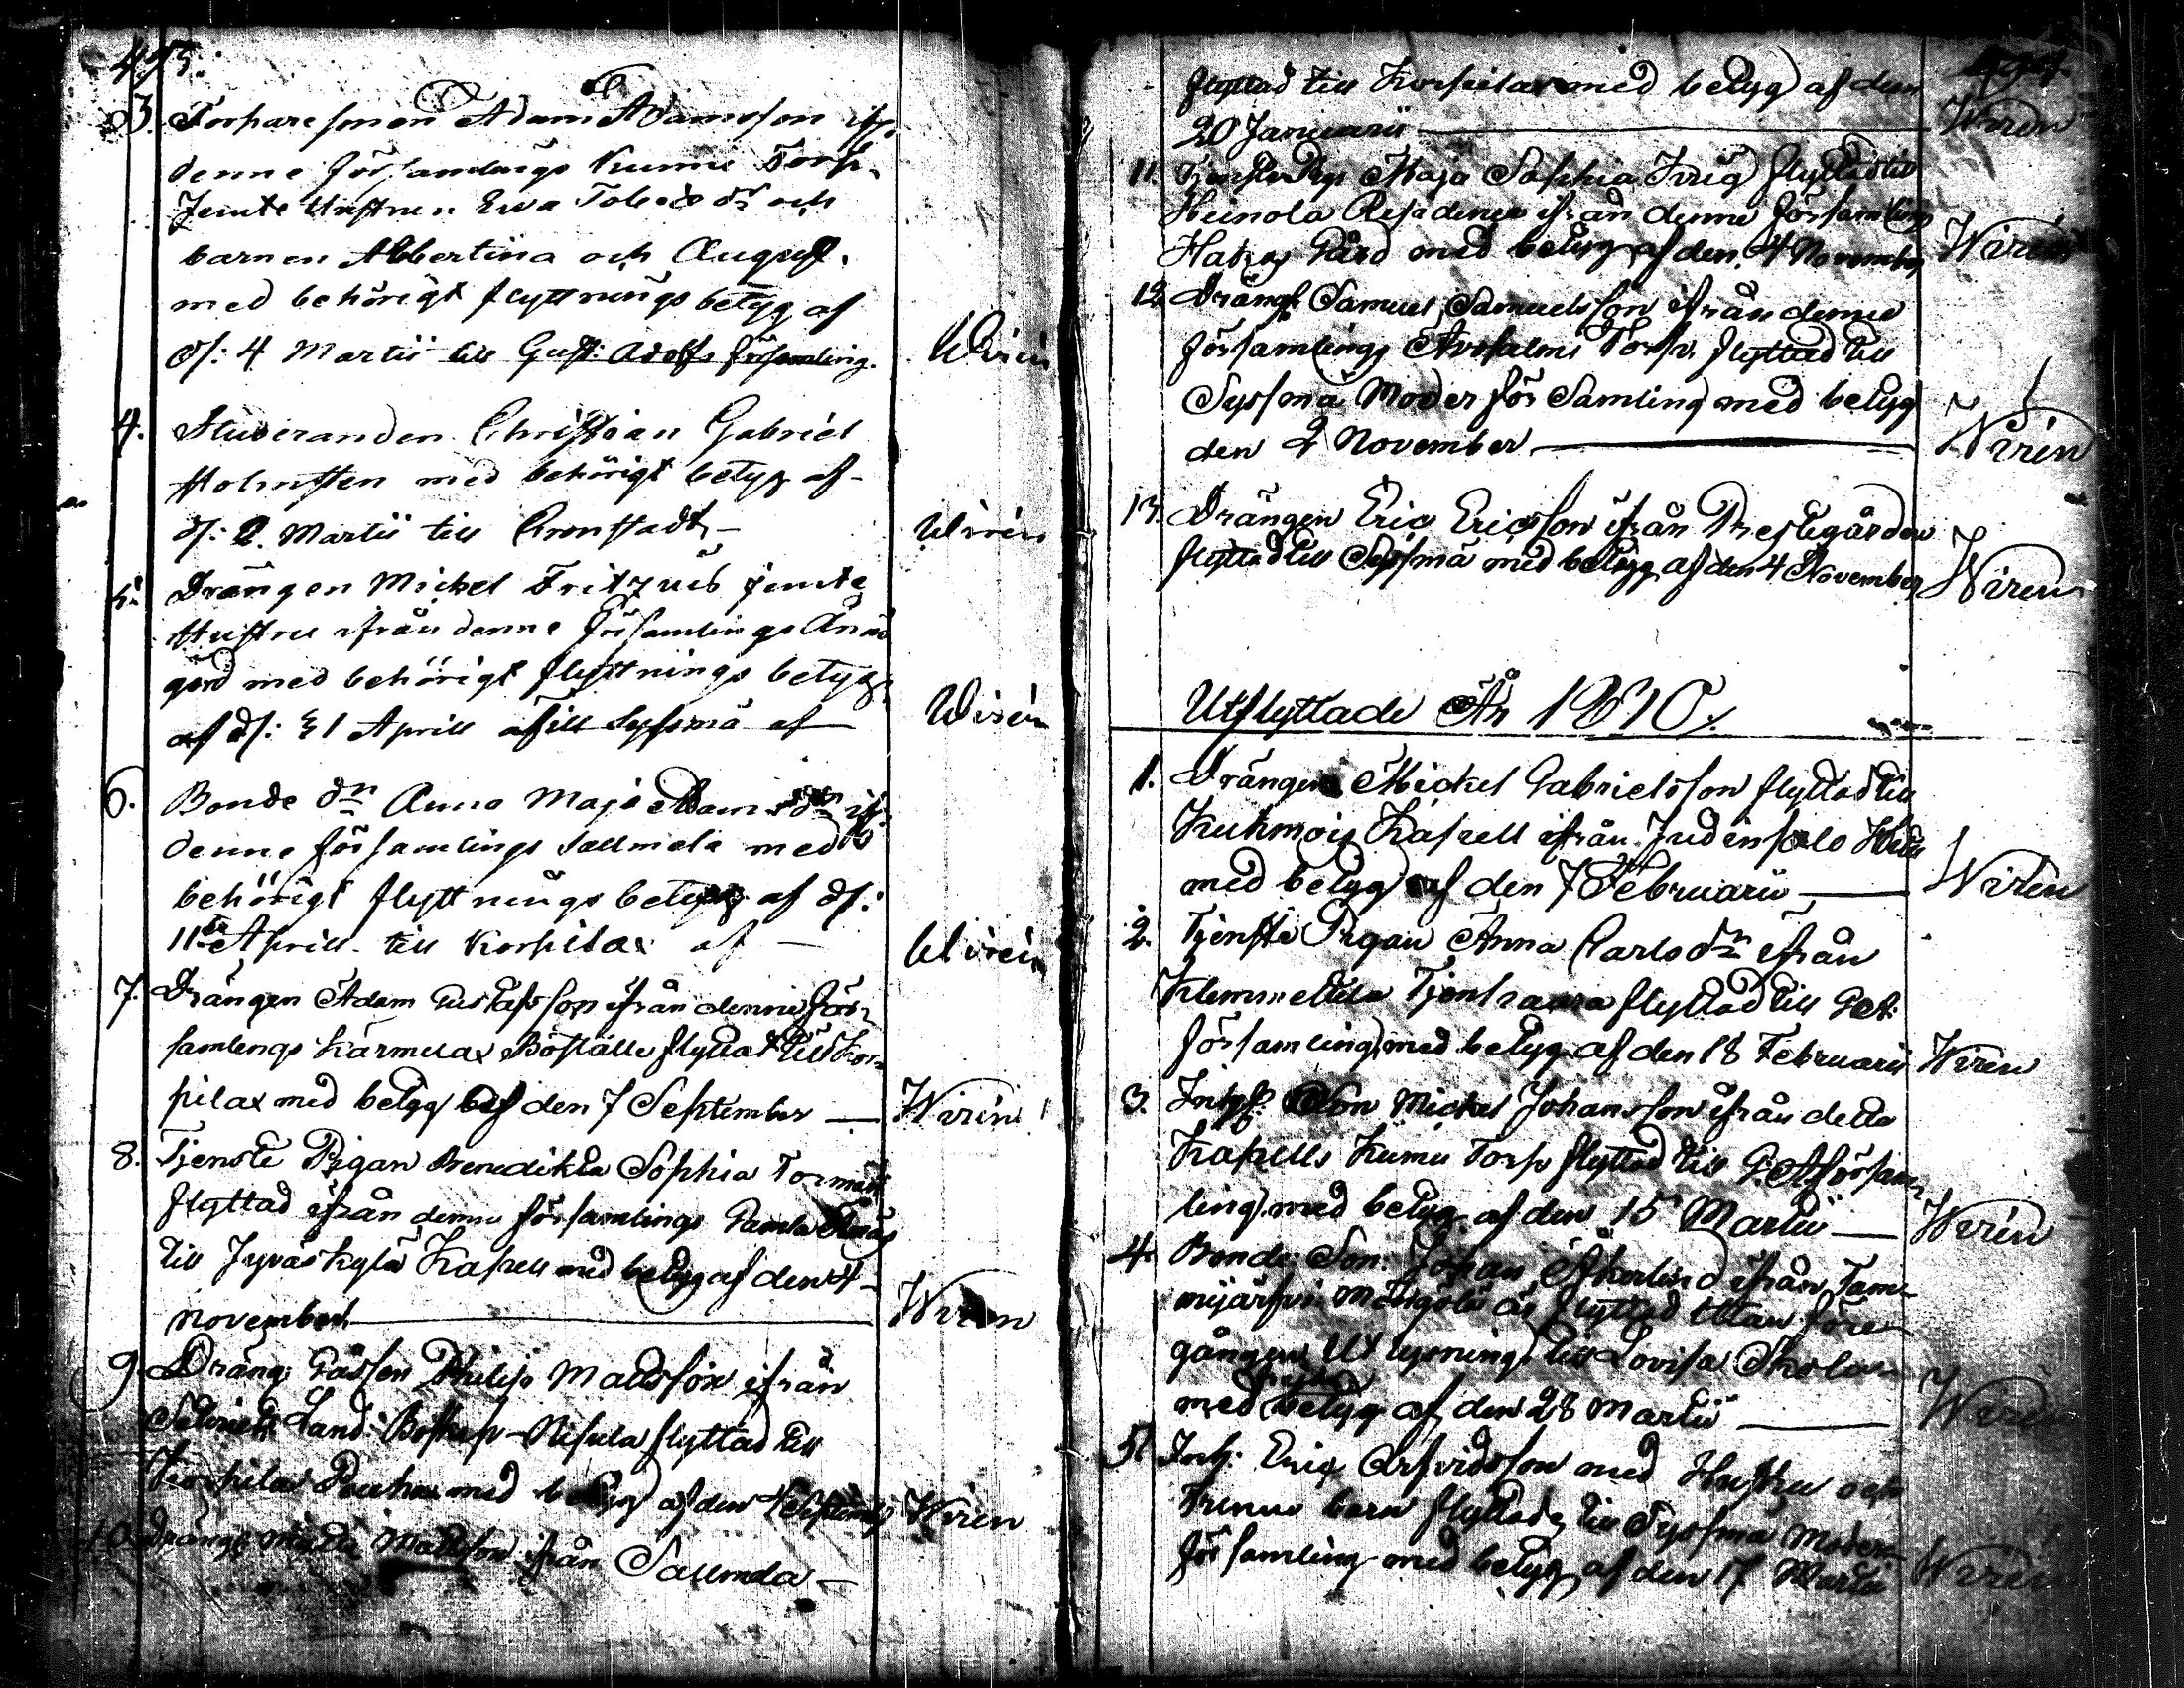 3. Torpare sonen Adam Adamsson ifr.
denne församlings Kumu Torp
Jemte Hustrun Ewa Tobiæ dr och
barnen Albertina och August.
med behörigt flyttnings betyg af
d/: 4 Martii till Gust: Adolfs församling. Wirén
4. Studeranden Christian Gabriel
Holmsten med behörigt betyg af
d/: 2. Martii till Cronstadt Wirén
5. Drängen Mickel Fritzeus jemte
Hustru ifrån denne församlings
gård med behörigt flyttnings betyg
af d/: 21 Aprill till Sysmä af Wirén
6. Bonde dn Anna Maja Adams dn ifr.
denne församlings Sallmela med
behörigt flyttnings betyg af d/:
11te Aprill till Korpilax af Wirén
7. Drängen Adam Gustafsson ifrån denne för-
samlings Kärmelax Boställe flyttat till Kor-
pilax med betyg af den 7 September Wirén
8. Tjenste Pigan Benedikta Sophia
flyttad ifrån denne församlings Gamla
till Jyväskylä Kapell med betyg af den 4
November Wirén
9. Dräng Gåssen Philip Madsson ifrån
Land Nisula flyttad till
Korpilax med betyg af den Wirén
10. Dräng Matts Mattsson ifrån Sallmela
flyttad till Korpilax med betyg af den
20 Januarii Wirén
11. Maja Sophia Krig flyttad till
Heinola Residence ifrån denne församlings
Gård med betyg af den 4 November Wirén
12. Dräng Samuel Samuelsson ifrån denne
församlings Torp. flyttad till
Syssmä Moder för Samling med betyg
den 2 November Wirén
13. Drängen Eric Ericsson ifrån Prestegården
flyttad till Syssmä med betyg af den 4 November Wirén
Utflyttade År 1810.
1. Drängen Mickel Gabrielsson flyttad till
Kuhmois Kapell ifrån
med betyg af den 7 Februarii Wirén
2. Tjenste Pigan Anna Carls dn ifrån
Klemmettilä flyttad till
församling med betyg af den 18 Februarii Wirén
3. Son Mickel Johansson ifrån detta
Kapells Kumu Torp flyttad till G: A församl
ling med betyg af den 15 Martii Wirén
4. Bonde Son Johan Åkerlind ifrån Tam-
mijärfvi är flyttad Utan före
gången Ut lysning till Lovisa Skola
med betyg af den 28 Martii Wirén
5. Inh: Eric Arfvidsson med Hustru och
Trenne barn flyttade till Syssmä Moder
församling med betyg af den 17 Martii Wirén